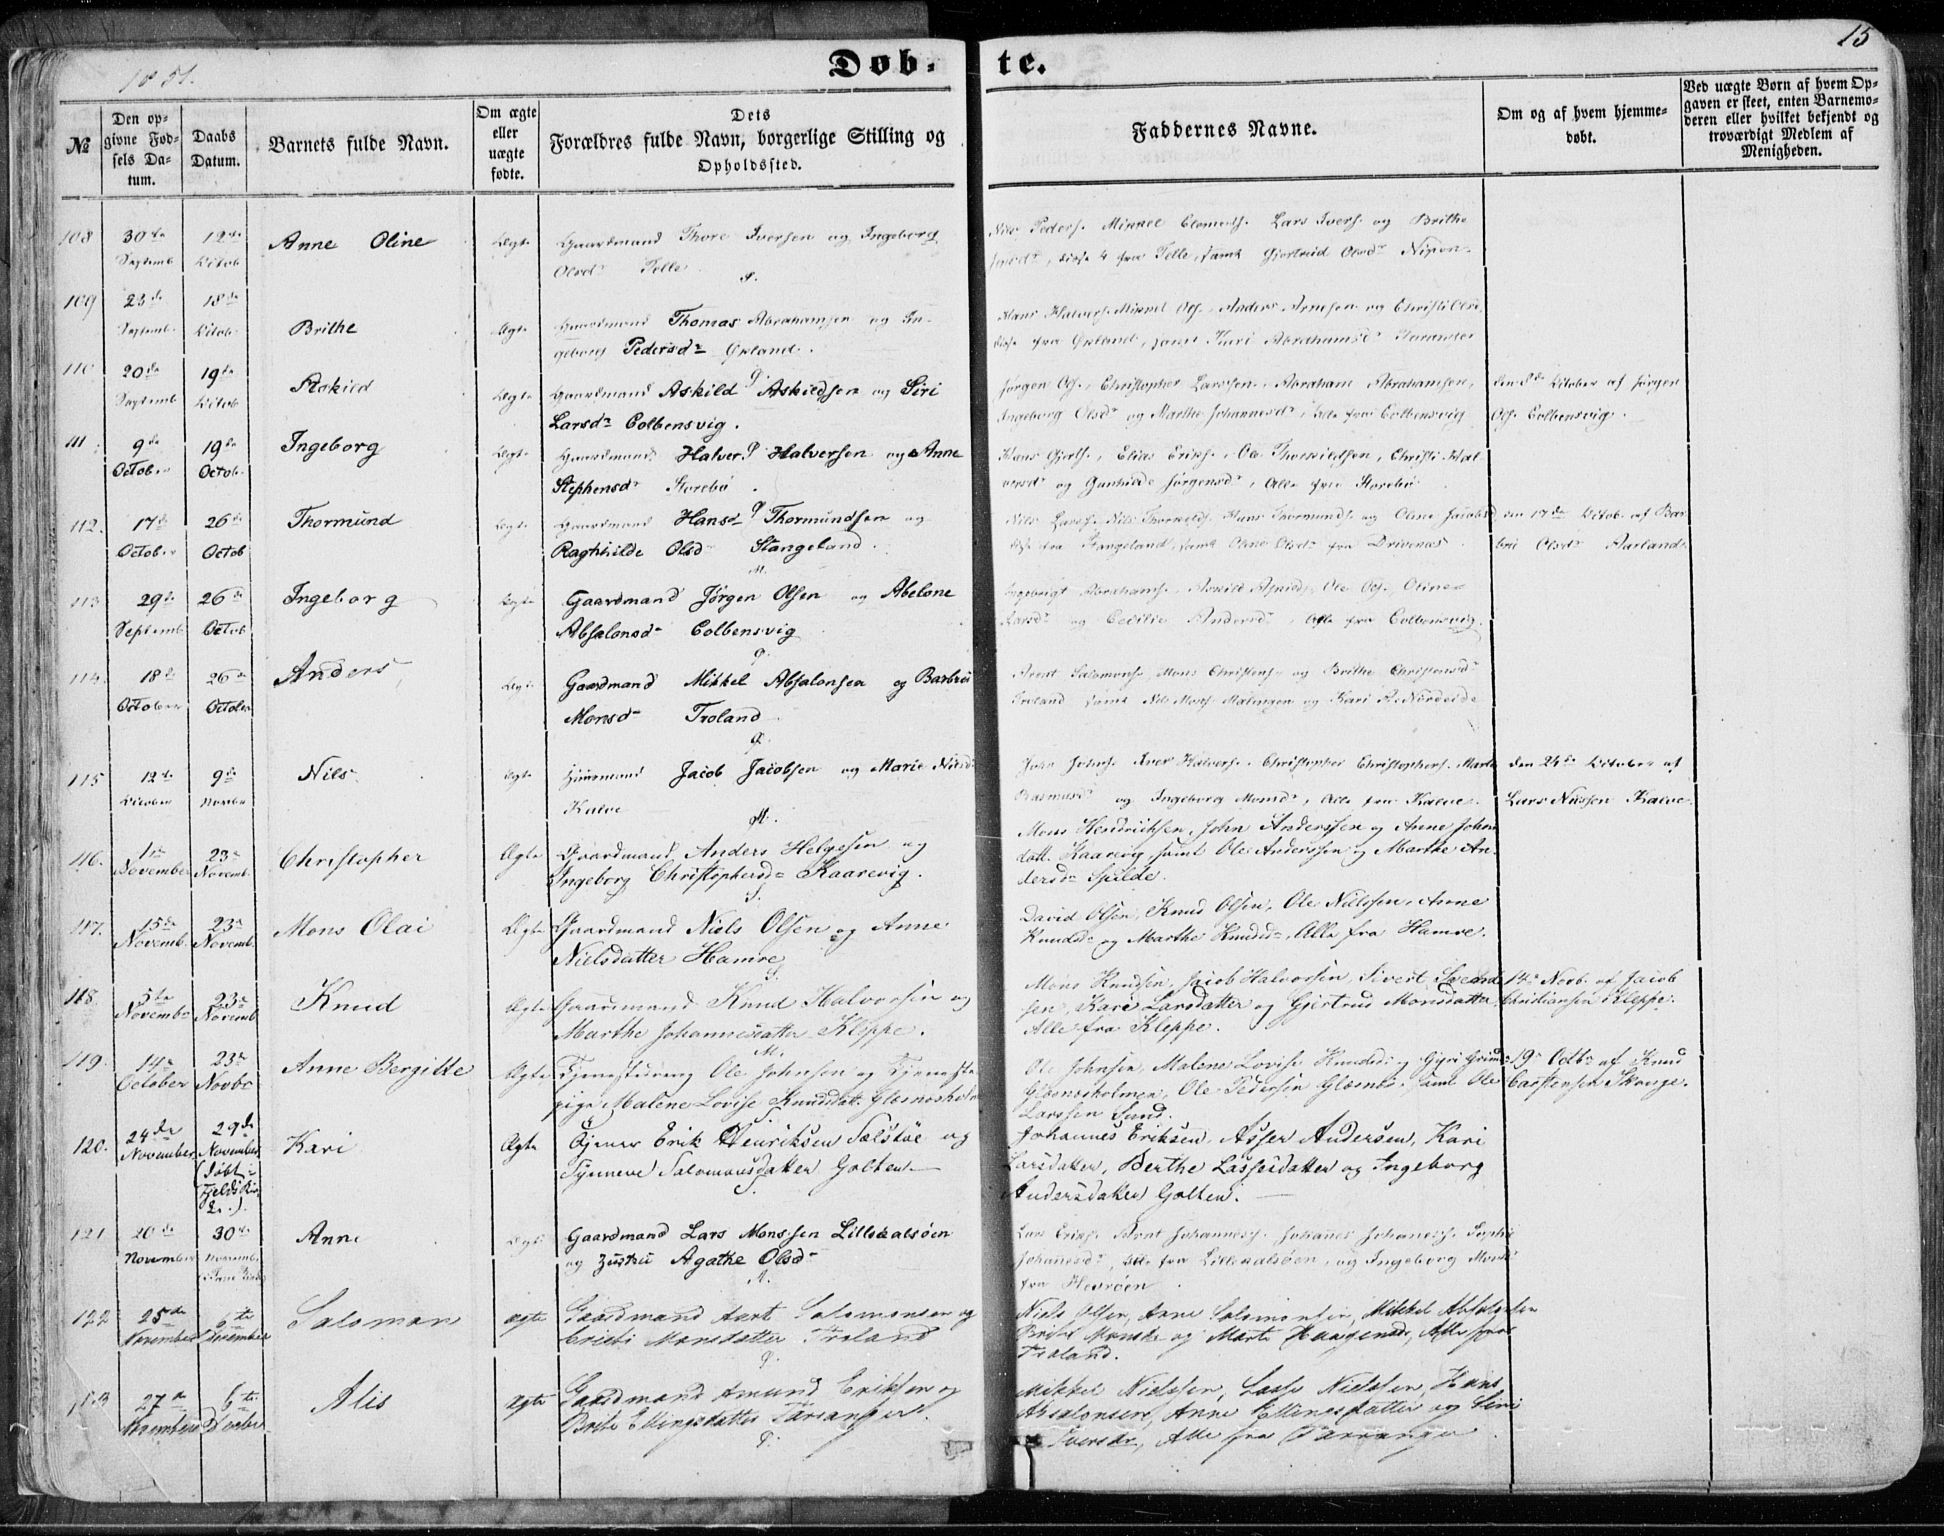 1851.
Døb-
te.
15
№
Den op-
givne Fød-
sels Da-
tum.
Daabs
Datum.
Barnets fulde Navn.
Om ægte
eller
uægte
fødte.
Dets
Forældres fulde Navn, borgerlige Stilling og
Opholdssted.
Faddernes Navne.
Om og af hvem hjemme-
døbt.
Ved uægte Børn af hvem Op-
gaven er skeet, enten Barnemo-
deren eller hvilket bekjendt og
troværdigt Medlem af
Menigheden.
108
30de
Septemb
12te
Octob
Anne Oline
Ægte
Gaardmand Thore Iversen og Ingeborg
Olsdr Telle
Nils Peders. Mikkel Clemets. Lars Ivers. og Brithe
disse 4 fra Telle, samt Gjertrud Olsdr Nipen
109
23de
Septemb.
18de
Octob.
Brithe
Ægte
Gaardmand Thomas Abrahamsen og In-
geborg Pedersdr
Hans Halvers. Mikkel Ols. Anders Arnesen og Christi Olsd
disse fra samt Kari Abrahamsdr
110
20de
Septemb
19de
Octob
Askild
Ægte
Gaardmand Askild Askildsen og Siri
Larsdr Colbensvig.
Jørgen Ols., Christopher Larssen, Abraham Abrahamsen,
Ingeborg Olsdr og Marthe Johannesdr, Alle fra Colbensvig
den 8de October af Jørgen
Ols. Colbensvig.
111.
9de
October
19de
Octob.
Ingeborg
Ægte
Gaardmand Halver Halversen og Anne
Stephensdr Storebø.
Hans Gjerts., Elias Eriks., Ole Thorkildsen, Christi Hal-
versdr og Gunhilde Jørgensdr, Alle fra Storebø
112.
17de
October
26de
Octob
Thormund
Ægte
Gaardmand Hans Thormundsen og
Raghhilde Olsdr Stangeland.
Nils Larss. Nils Thorkelds. Hans Thormunds. og Oline Jacobsd
disse fra Stangeland, samt Anne Olsdr fra Drivenes
den 17de Octob. af Bar
bru Olsdr Aarland.
113
29de
Septemb
26de
Octob
Ingeborg
Ægte
Gaardmand Jørgen Olsen og Abelone
Absalonsd- Colbensvig
Ingebrigt Abrahams. Askild Askilds. Ole Ols. Oline
Larsdr og Cecilie Andersdr, Alle fra Colbensvig.
114.
18de
October
26de
October
Anders
Ægte
Gaardmand Mikkel Absalonsen og Barbru
Monsd- Troland
Arent Salomons., Mons Christens. og Brithe Christensdr
Troland samt Nils Mons. Malingen og Kari Nordeide
115
12te
October
9de
Novbr
Nils
Ægte
Huusmand Jacob Jacobsen og Marie Nilsd
Kalve
John Johns. Iver Halvers. Christopher Christophers. Marte
Rasmusdr og Ingeborg Monsdr, Alle fra Kalve.
den 24de October af
Lars Nilssen Kalve.
116.
1te
November
23de
Novemb.
Christopher
Ægte
Gaardmand Anders Helgesen og
Ingeborg Christophersd= Kaarevig.
Mons Hendriksen, John Anderssen og Anne Johns
datt. Kaarevig, samt Ole Anderssen og Marthe An-
dersd= Spilde.
117.
15de
Novemb.
23de
Novemb.
Mons Olai
Ægte
Gaardmand Niels Olsen og Anne
Nielsdatter Hamre
David Olsen, Knud Olsen, Ole Nielssen, Anne
Knudsd= og Marthe Knudsd=, Alle fra Hamre.
118.
5te
Novembr
23de
Novemb
Knud
Ægte
Gaardmand Knud Halvorsen og
Marthe Johannesdatter Kleppe.
Mons Knudsen, Jacob Halvorsen, Sivert Svend
sen, Kari Larsdatter og Gjertrud Monsdatter,
Alle fra Kleppe.
14de Novb. af Jacob
Christiansen Kleppe.
119.
14de
October
23de
Novbr
Anne Bergitte
Ægte
Tjenestdreng Ole Johnsen og Tjeneste
pige Malene Lovise Knudsdatt. Glæsnesholm
Ole Johnsen, Malene Lovise Knudsd. og Gyri
Glæsnesholmen, Ole Pedersen Glæsnes, samt Ole
Larssen Sund.
19de Octbr af Knud
Carstensen Skauge.
120.
24de
November
29de
November
(døbt i
Fjelds Kir
ke.)
Kari
Ægte
Erik Henriksen Solstøe og
Synneve Salomonsdatter Golten.
Johannes Eriksen, Asser Andersen, Kari
Larsdatter, Berthe Lassesdatter og Ingeborg
Andersdatter Golten.
121
20de
November
30de
Novemb.
Anne
Ægte
Gaardmand Lars Monssen Lillekalsøen
og Hustru Agathe Olsd-
Lars Eriks. Bernt Johanness. Johannes Johanness. Sophie
Johannesdr, Alle fra Lillekalsøen, og Ingeborg Monsdr
fra Hevrøen
122
25de
November
6te
December
Salomon
ægte
Gaardmand Aart Salomonsen og
Cristi Monsdatter Troland
Niels Olsen, Arne Salomonsen, Mikkel Absalonsen
Britel Monsdr og Marte Haagensdr, Alle fra
Troland.
123
27de
November
6te
Decbr
Alis
Ægte
Gaardmand Amund Eriksen og
Brite Ellingsdatter Tarranger.
Mikkel Nielssen, Lasse Nielssen, Hans
Absalonsen, Anne Ellingsdatter og Siri
Iversdr, Alle fra Tarranger.